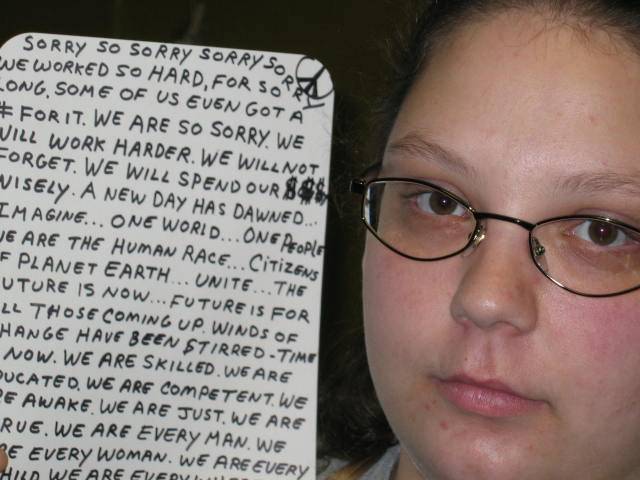 SORRY SO SORRY SORRY SORRY
WE WORKED SO HARD, FOR SO
LONG. SOME OF US EVEN GOT A
# FOR IT. WE ARE SO SORRY. WE
WILL WORK HARDER. WE WILL NOT
FORGET. WE WILL SPEND OUR $$$
WISELY. A NEW DAY HAS DAWNED...
IMAGINE... ONE WORLD... ONE PEOPLE
WE ARE THE HUMAN RACE... CITIZENS
OF PLANET EARTH... UNITE... THE
FUTURE IS NOW... FUTURE IS FOR
ALL THOSE COMING UP. WINDS OF
CHANGE HAVE BEEN STIRRED-TIME
NOW. WE ARE SKILLED. WE ARE
EDUCATED. WE ARE COMPETENT. WE
ARE AWAKE. WE ARE JUST. WE ARE
TRUE. WE ARE EVERY MAN. WE
ARE EVERY WOMAN. WE ARE EVERY
CHILD WE ARE